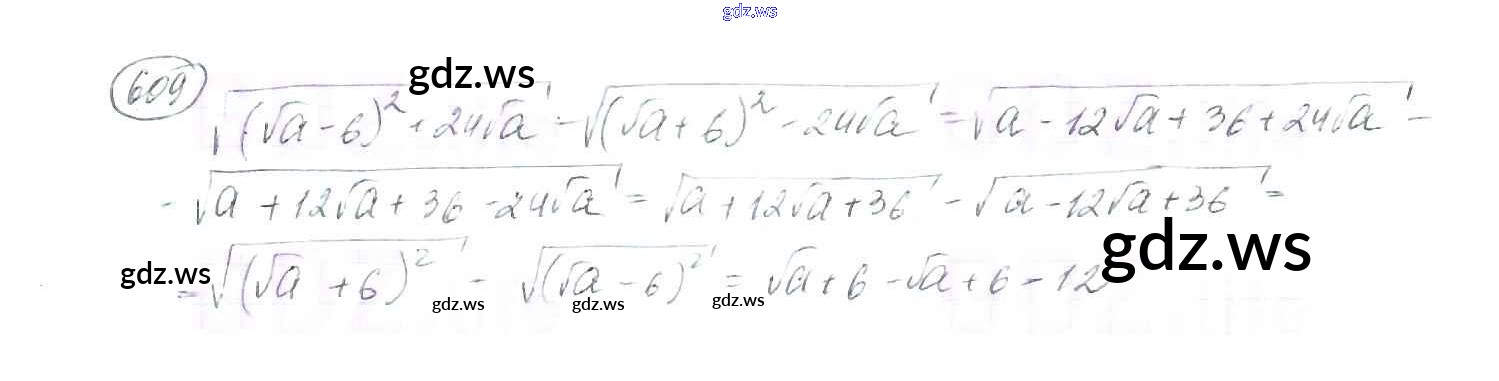 gdz.ws
609 √((√a - 6)² + 24√a) - √((√a + 6)² - 24√a) = √(a - 12√a + 36 + 24√a) - gdz.ws
- √(a + 12√a + 36 - 24√a) = √(a + 12√a + 36) - √(a - 12√a + 36) =
gdz.ws
gdz.ws = √((√a + 6)²) - √((√a - 6)²) = √a + 6 - √a + 6 - 12
gdz.ws gdz.ws gdz.ws